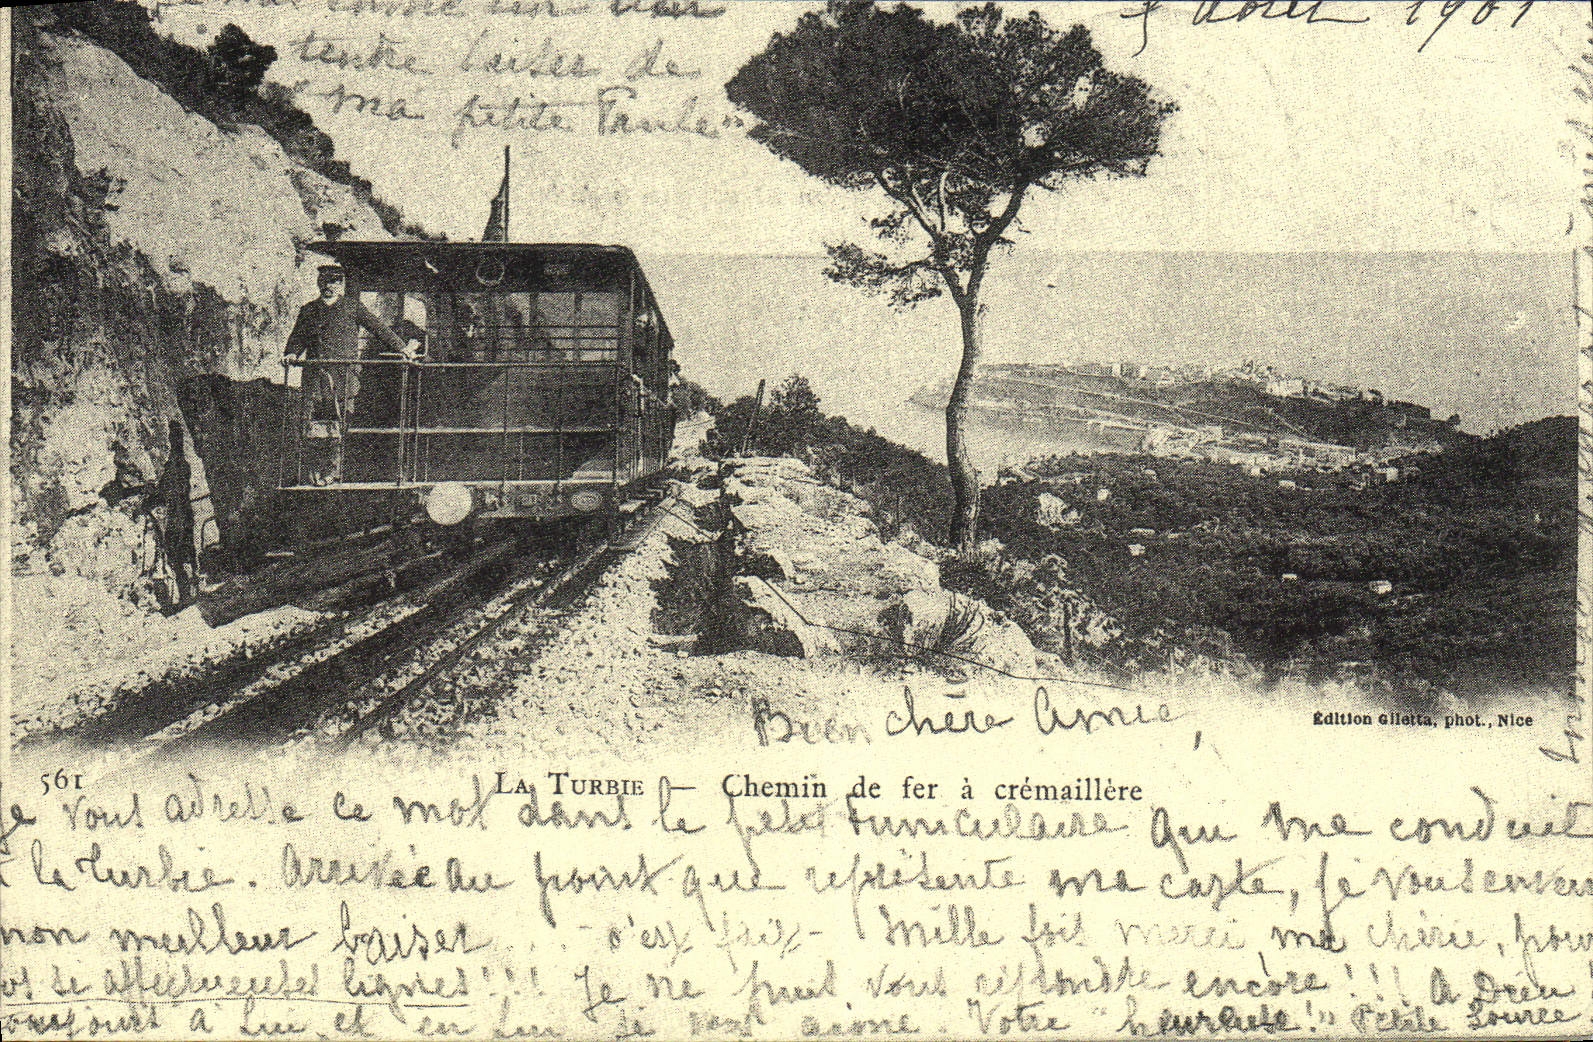 tendre baiser de
"ma petite Paule"
août 1901
Bien chère Amie,
Édition Giletta, phot., Nice
561
LA TURBIE — Chemin de fer à crémaillère
Je vous adresse ce mot dans le petit funiculaire qui me conduit
à la Turbie. Arrivée au point que représente ma carte, je vous envoie
mon meilleur baiser... - c'est fait - Mille fois merci ma chérie, pour
vos si affectueuses lignes!!! Je ne puis vous répondre encore!!! A Dieu
toujours à Lui et en Lui je vous aime. Votre "heureuse!" Petite